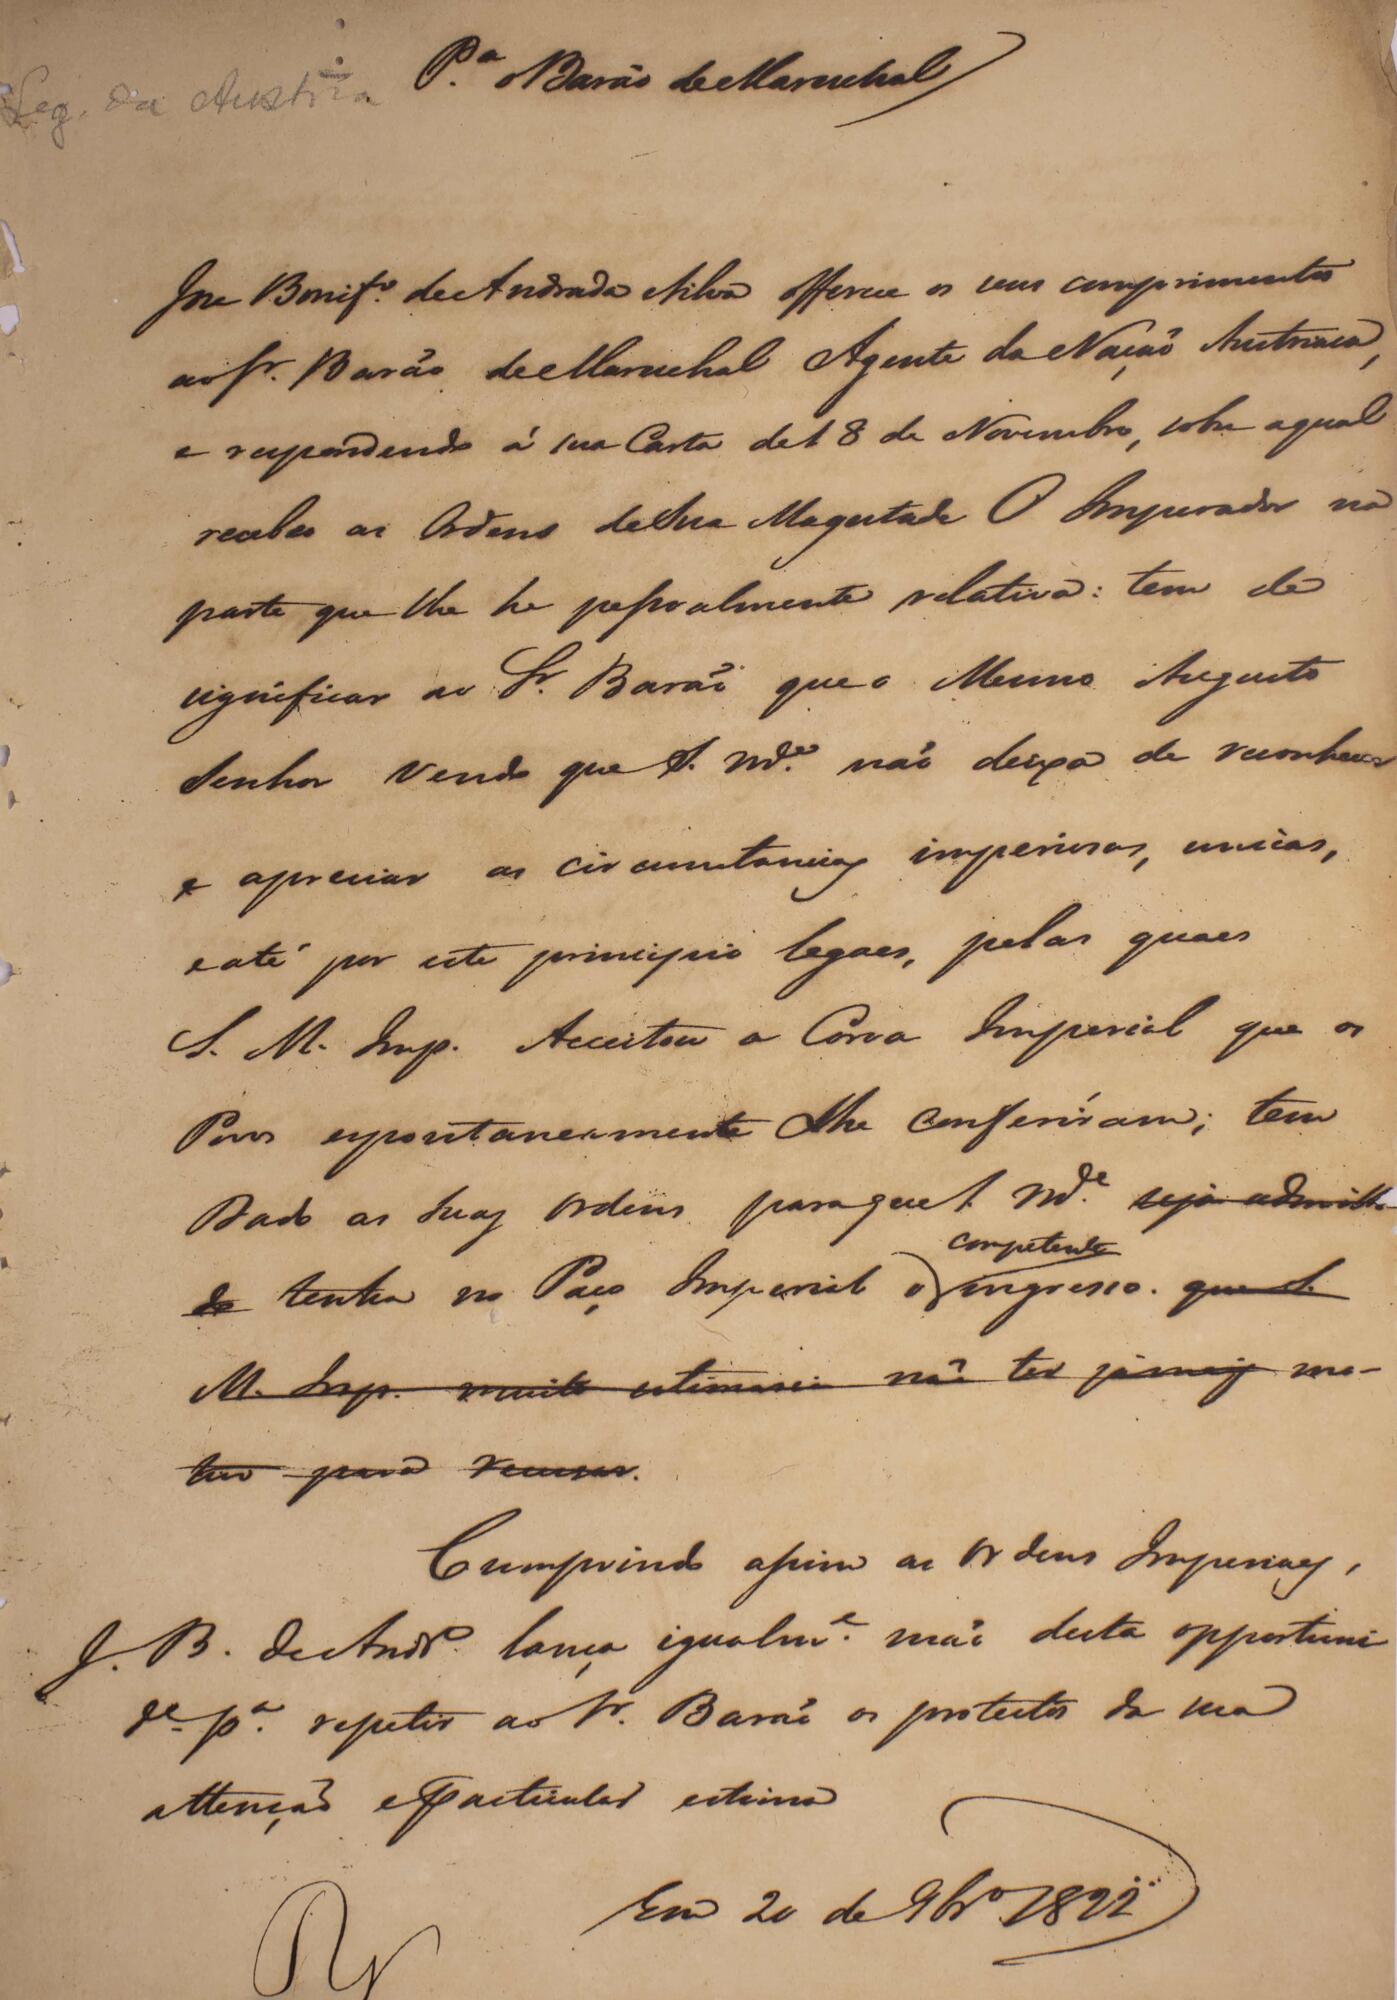 Leg. da Austria
P.ª o Barão de Mareschal
Jze Bonif.º de Andrada e Silva offerece os seus comprimentos
ao Sr. Barão de Mareschal Agente da Nação Austriaca,
e respondendo á sua Carta de 18 de Novembro, sobre a qual
recebeo as Ordens de Sua Magestade O Imperador na
parte que lhe he pessoalmente relativa: tem de
significar ao Sr. Barão que o Mesmo Augusto
Senhor vendo que S. M.ce não deixa de reconhecer
e apreciar as circumstancias imperiosas, unicas,
e até por este principio legaes, pelas quaes
S. M. Imp. Acceitou a Coroa Imperial que os
Povos espontaneamente Lhe conferíram; tem
Dado as Suas Ordens para que S. M.ce seja admitti-
do tenha no Paço Imperial o competente ingresso. que S.
M. Imp. muito estimaria não ter jámais mo-
tivo para recusar.
Cumprindo assim as Ordens Imperiaes,
J. B. de Andr.ª lança igualm.e mão desta opportuni
d.e p.ª repetir ao Sr. Barão os protestos da sua
attenção e particular estima
Em 20 de 9br.º 1822